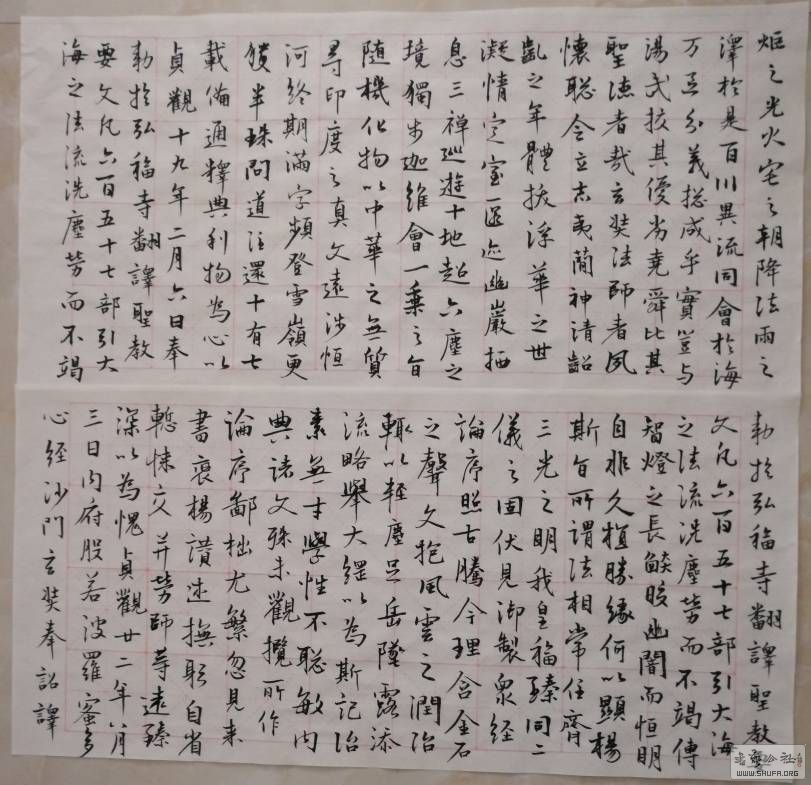 炬之光火宅之朝降法雨之
澤於是百川異流同會於海
万區分義揔成乎實豈与
湯武挍其優劣堯舜比其
聖德者哉玄奘法師者夙
懷聡令立志夷簡神清齠
齔之年體拔浮華之世
凝情定室匿迹幽巖栖
息三禪巡遊十地超六塵之
境獨步迦維會一乗之旨
隨機化物以中華之無質
尋印度之真文遠涉恒
河終期滿字頻登雪嶺更
獲半珠問道往還十有七
載備通釋典利物為心以
貞觀十九年二月六日奉
勅於弘福寺翻譯聖教
要文凡六百五十七部引大
海之法流洗塵勞而不竭
勅於弘福寺翻譯聖教
文凡六百五十七部引大海
之法流洗塵勞而不竭傳
智燈之長燄皎幽闇而恒明
自非久植勝緣何以顯揚
斯旨所謂法相常住齊
三光之明我皇福臻同二
儀之固伏見御製衆經
論序照古騰今理含金石
之聲文抱風雲之潤治
輒以輕塵足岳墜露添
流略舉大綱以為斯記治
素無才學性不聡敏内
典諸文殊未觀攬所作
論序鄙拙尤繁忽見来
書褒揚讃述撫躬自省
慙悚交并勞師等遠臻
深以為愧貞觀廿二年八月
三日内府般若波羅蜜多
心經沙門玄奘奉詔譯
WWW.SHUFA.ORG